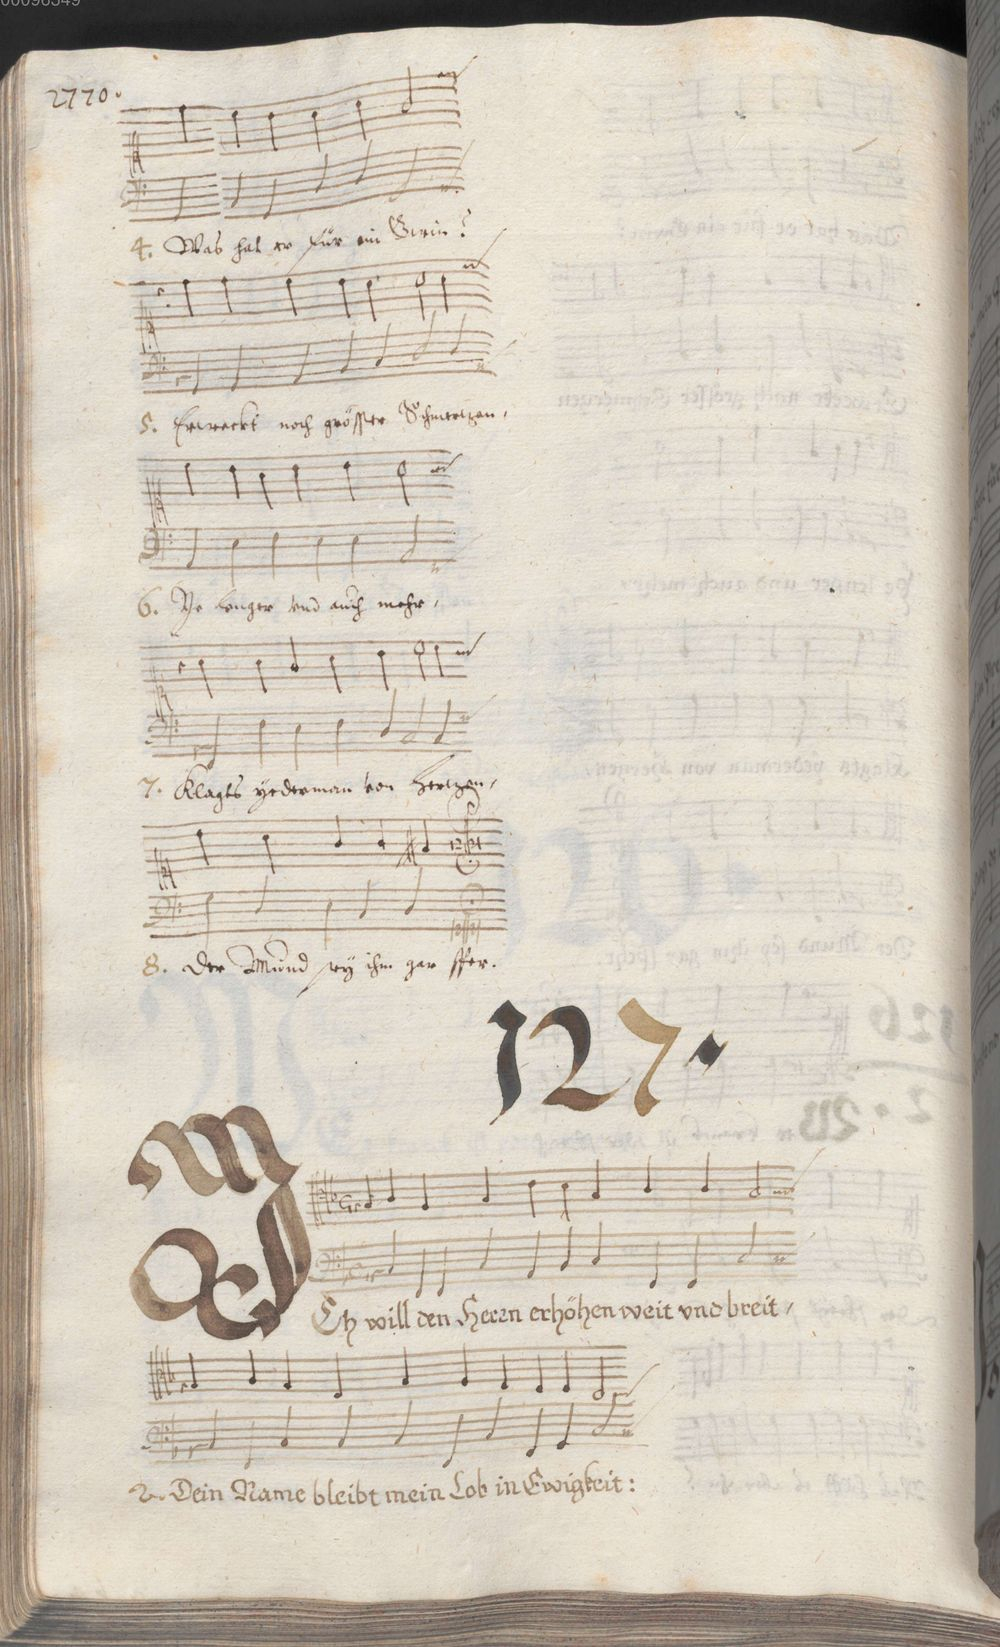 00096549
2770.
4. Was hat er für ein
5. Erweckt noch grösser Schmertzen,
6. Ye lenger vnd auch mehr,
7. Klagts yederman von Hertzen,
8. Der Mund sey ihm gar
127.
M
ICh will den Herrn erhöhen weit vnd breit,
2. Dein Name bleibt mein Lob in Ewigkeit: